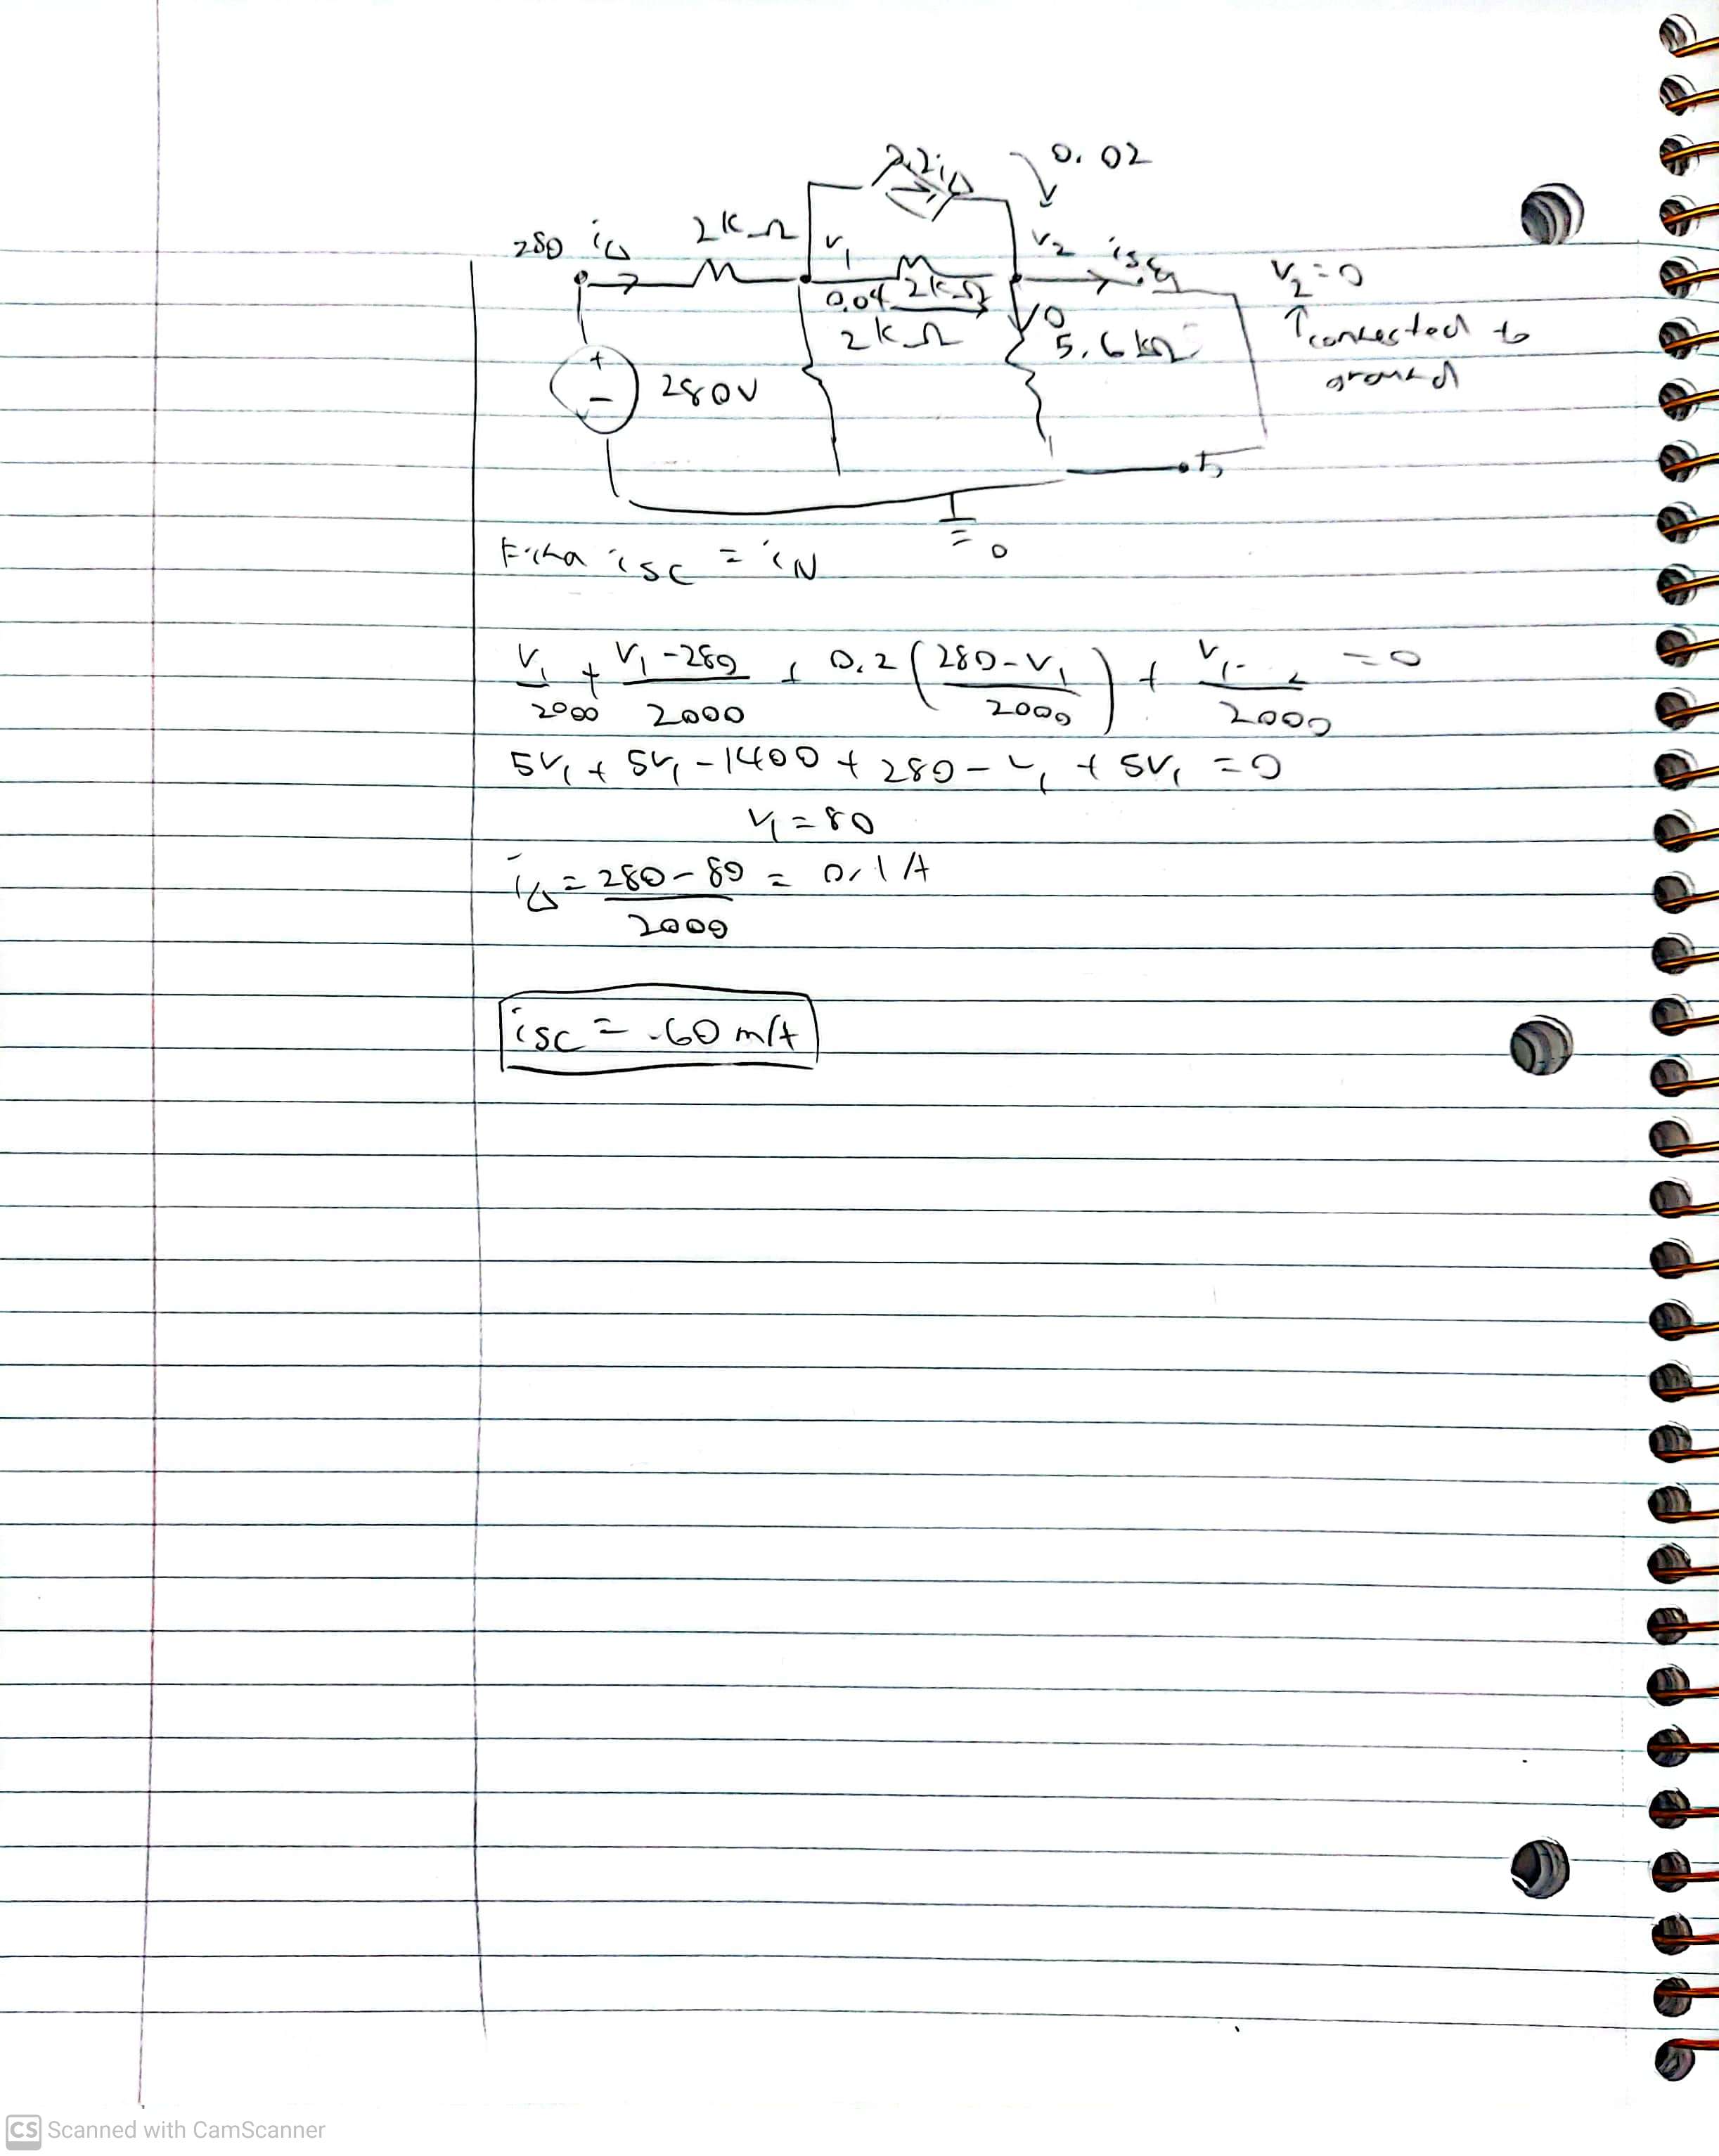 0.2iΔ 0.02
280 iΔ 2kΩ V₁ V₂ isc a V₂=0
0.04 2kΩ 0 ↑connected to
2kΩ 5.6kΩ ground
+
- 280V
b
0
Find isc = iN
V₁/2000 + (V₁-280)/2000 + 0.2((280-V₁)/2000) + V₁/2000 = 0
5V₁ + 5V₁ - 1400 + 280 - V₁ + 5V₁ = 0
V₁ = 80
iΔ = (280-80)/2000 = 0.1A
isc = 60 mA
CS Scanned with CamScanner